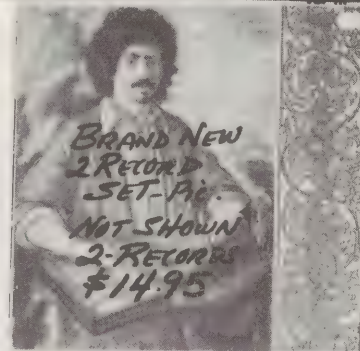 BRAND NEW
2 RECORD
SET-Pic.
NOT SHOWN
2-RECORDS
$14.95